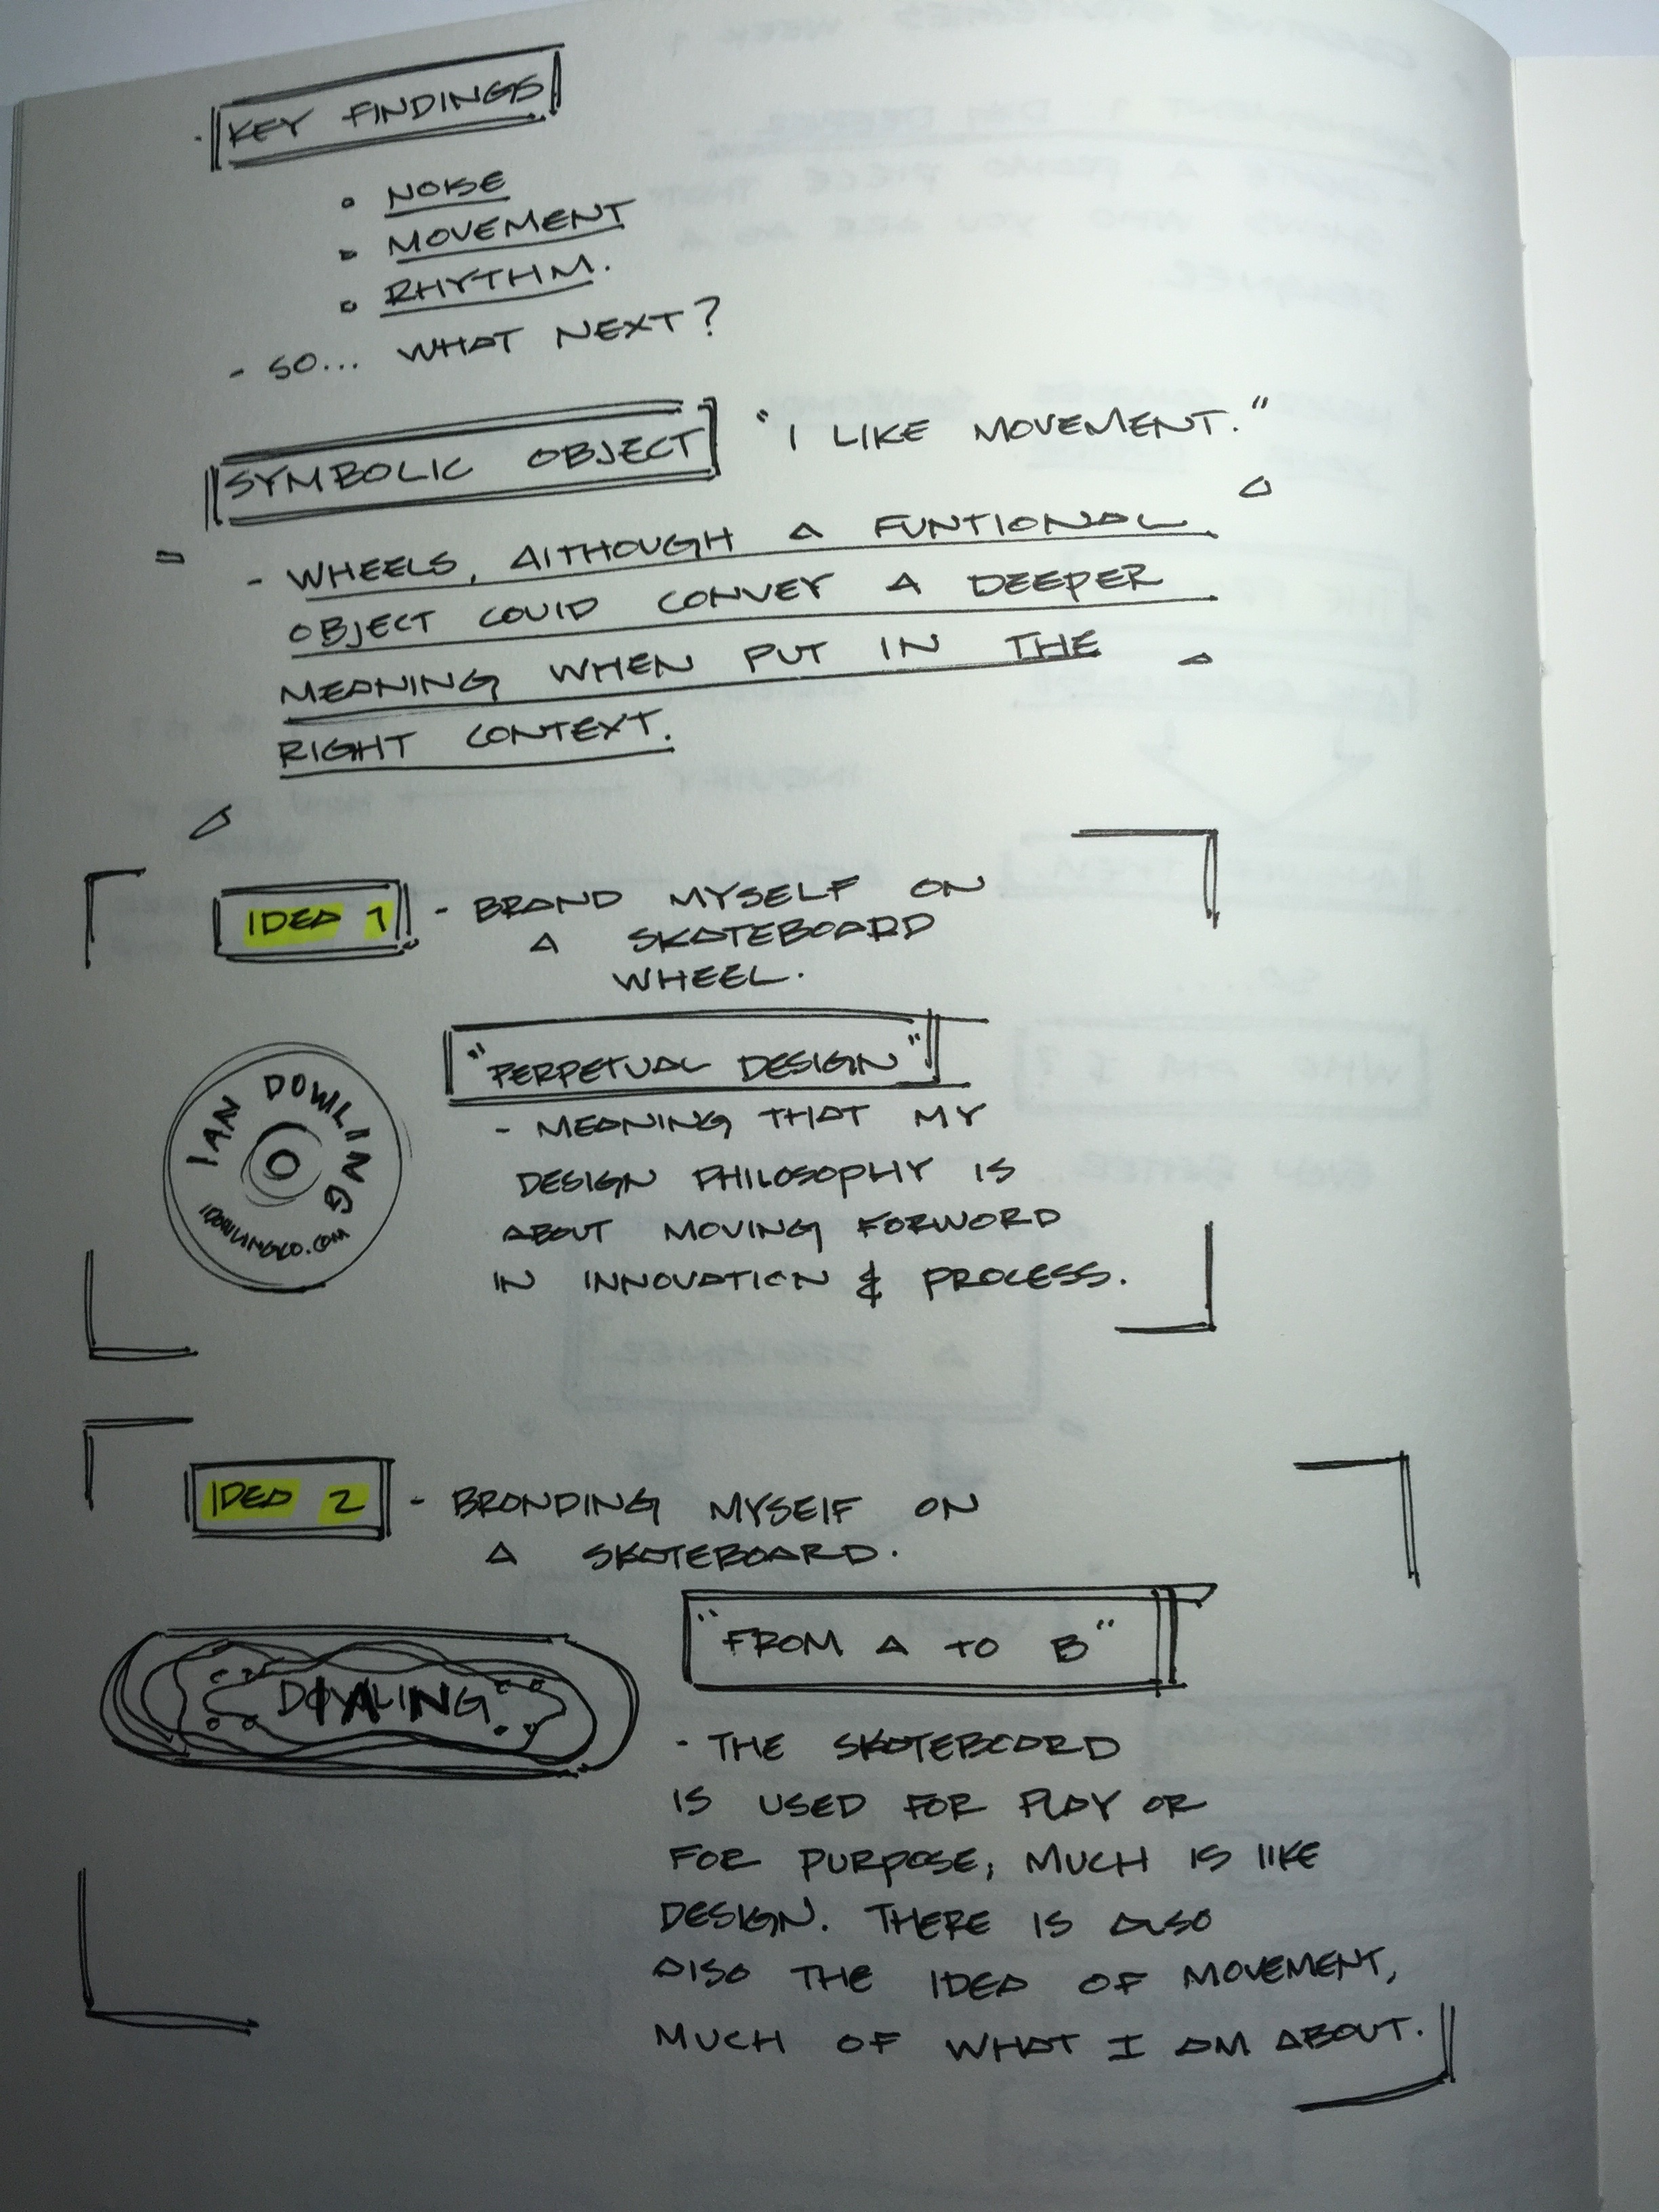 - KEY FINDINGS
• NOISE
• MOVEMENT
• RHYTHM.
- SO... WHAT NEXT?
SYMBOLIC OBJECT "I LIKE MOVEMENT."
- WHEELS, ALTHOUGH A FUNTIONAL
OBJECT COULD CONVEY A DEEPER
MEANING WHEN PUT IN THE
RIGHT CONTEXT.
IDEA 1 - BRAND MYSELF ON
A SKATEBOARD
WHEEL.
"PERPETUAL DESIGN"
- MEANING THAT MY
DESIGN PHILOSOPHY IS
ABOUT MOVING FORWORD
IN INNOVATION & PROCESS.
IAN DOWLING
IDOWLINGCO.COM
IDEA 2 - BRANDING MYSELF ON
A SKATEBOARD.
DOWLING
"FROM A TO B"
- THE SKATEBOARD
IS USED FOR PLAY OR
FOR PURPOSE, MUCH IS LIKE
DESIGN. THERE IS ALSO
ALSO THE IDEA OF MOVEMENT,
MUCH OF WHAT I AM ABOUT.